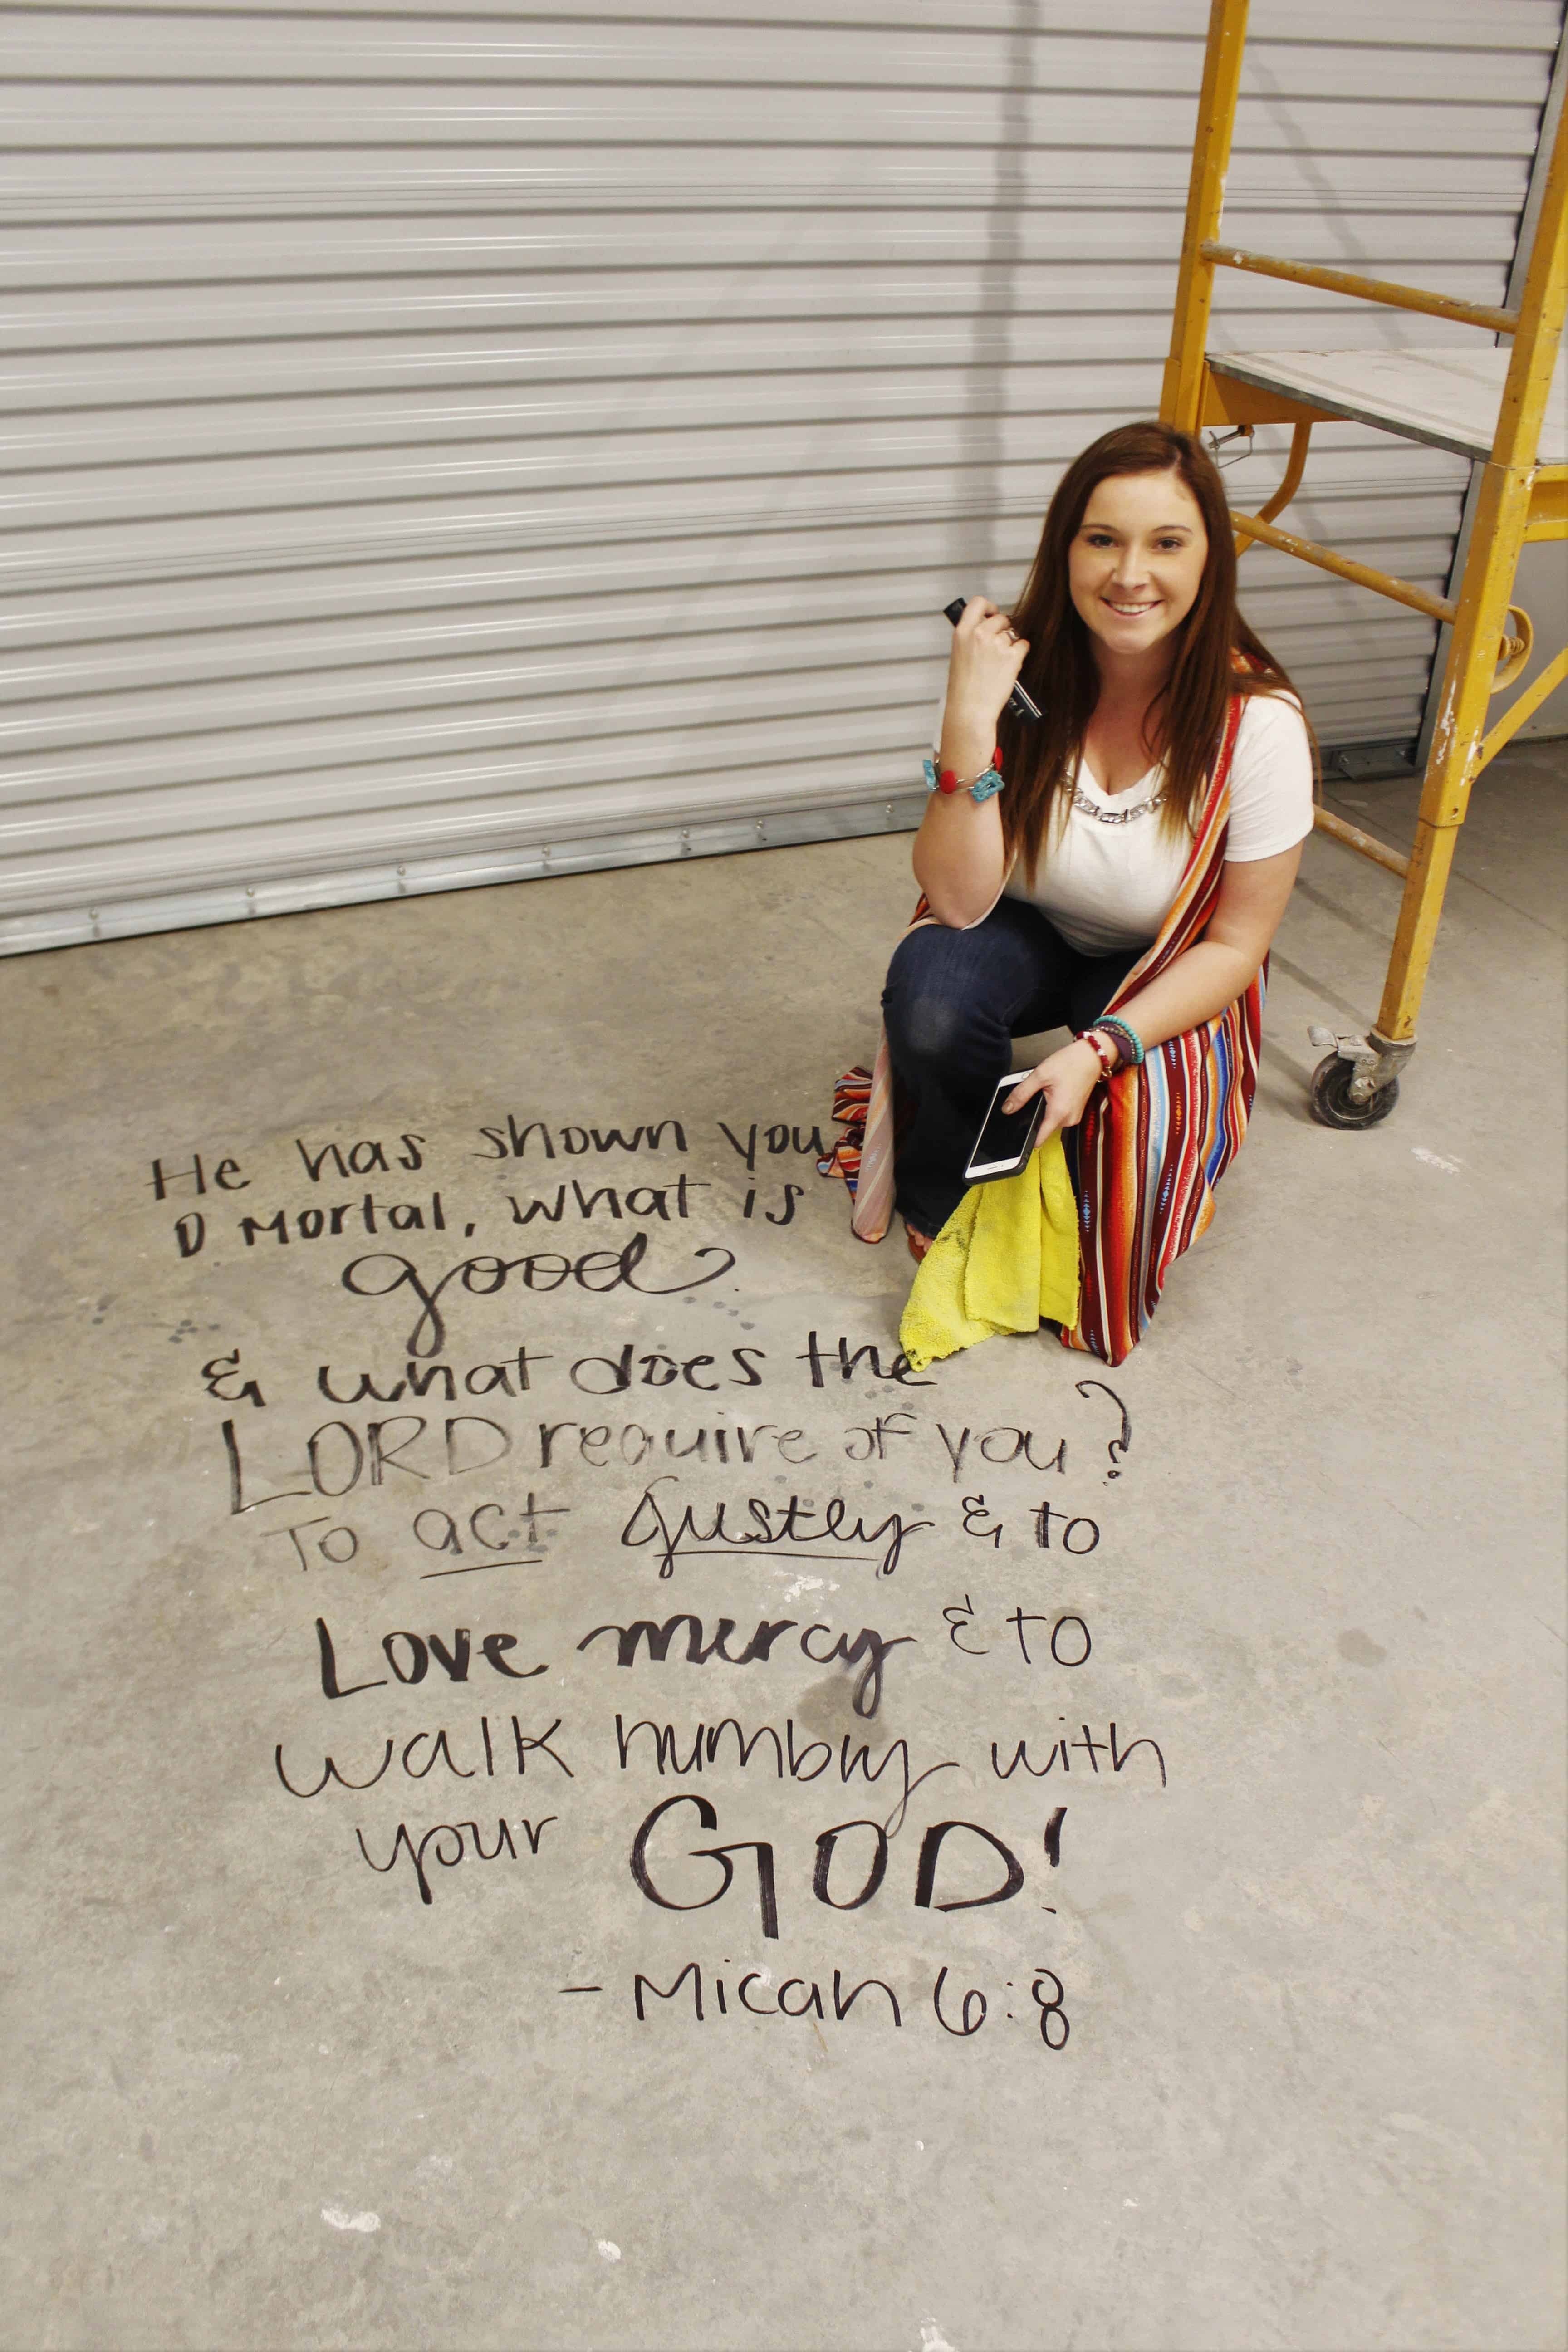 He has shown you
O Mortal, what is
good.
& what does the
LORD require of you?
To act justly & to
Love mercy & to
walk humbly with
your GOD!
- Micah 6:8